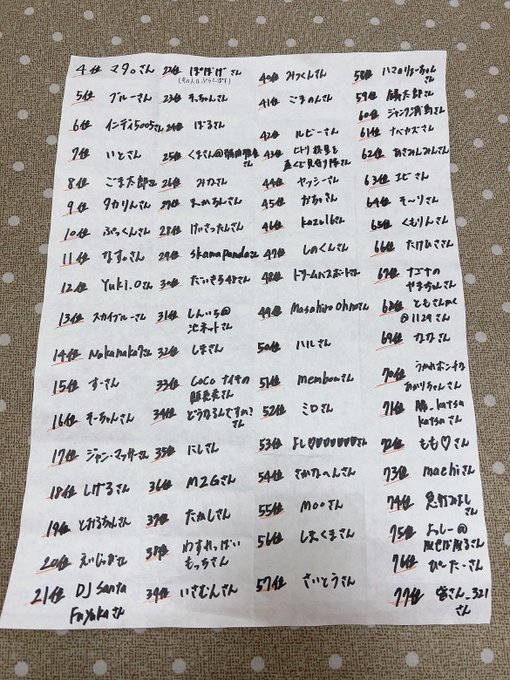 4位 マタoさん
5位 ブルーさん
6位 インディ500さん
7位 いとさん
8位 ごま太郎さん
9位 タカリんさん
10位 ぷっくんさん
11位 なすのさん
12位 Yuki.oさん
13位 スカイブルーさん
14位 Nakanakaさん
15位 すーさん
16位 そーちゃんさん
17位 ジャン・マッサーさん
18位 しげるさん
19位 とおるちゃんさん
20位 えいじさん
21位 DJ Santa
Fuyukaさん
22位 ぽぽげさん
23位 そっちゃんさん
24位 ぱるさん
25位 くまさん@
26位 みかさん
27位
28位 げんさったんさん
29位 skamapandaさん
30位 だいき548さん
31位 しんいち@
北ネットさん
32位 しまさん
33位 CoCo ナイキの
販売さん
34位 どうなるんですかさん
35位 にしさん
36位 M2Gさん
37位 たかしさん
38位 わすれっぽい
もっちさん
39位 いさむんさん
40位 みっくんさん
41位 ごまのんさん
42位 ルビーさん
43位 ヒトリ
44位 ヤッシーさん
45位 かちゃさん
46位 kazu16さん
47位 しのくんさん
48位 ドリームバスボートさん
49位 Masahiro Ohnoさん
50位 ハルさん
51位 membowさん
52位 ミロさん
53位 よし♡♡♡♡♡♡♡さん
54位 さかなへんさん
55位 Mooさん
56位 しまくまさん
57位 さいとうさん
58位 ハマのりょーちゃん
さん
59位 勝太郎さん
60位 ジャンク
61位 ナベヤスさん
62位 あさみんみんさん
63位 エビさん
64位 そーりさん
65位 くもりんさん
66位 たけひさん
67位 ナゴヤの
やまちゃんさん
62位 ともさんかく
@1129さん
69位 カカさん
70位 うかれポンチカ
あかりちゃんさん
71位 勝_katsa
katsaさん
72位 もも♡さん
73位 machiさん
74位
75位 よっしー@
76位 ぴーたーさん
77位 宮さん_321
さん